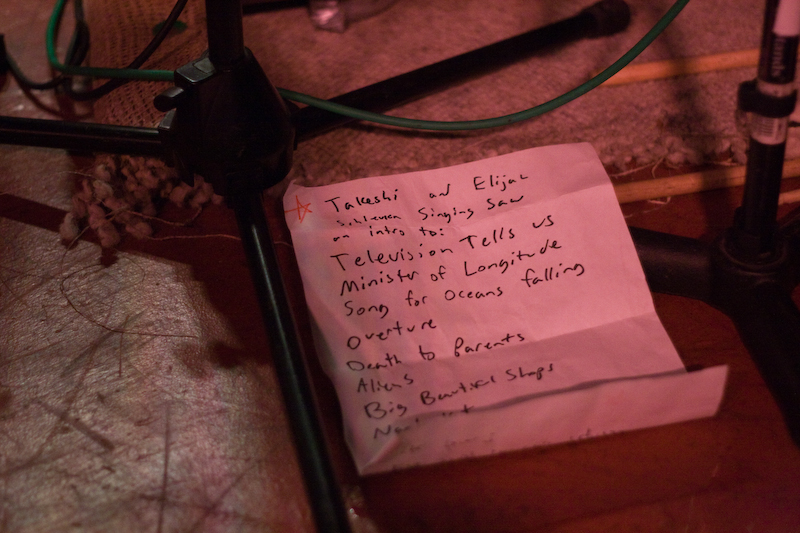 Takeshi and Elijah
Singing Saw
on intro to:
Television Tells us
Minister of Longitude
Song for Oceans falling
Overture
Death to Parents
Aliens
Big Beautiful Ships